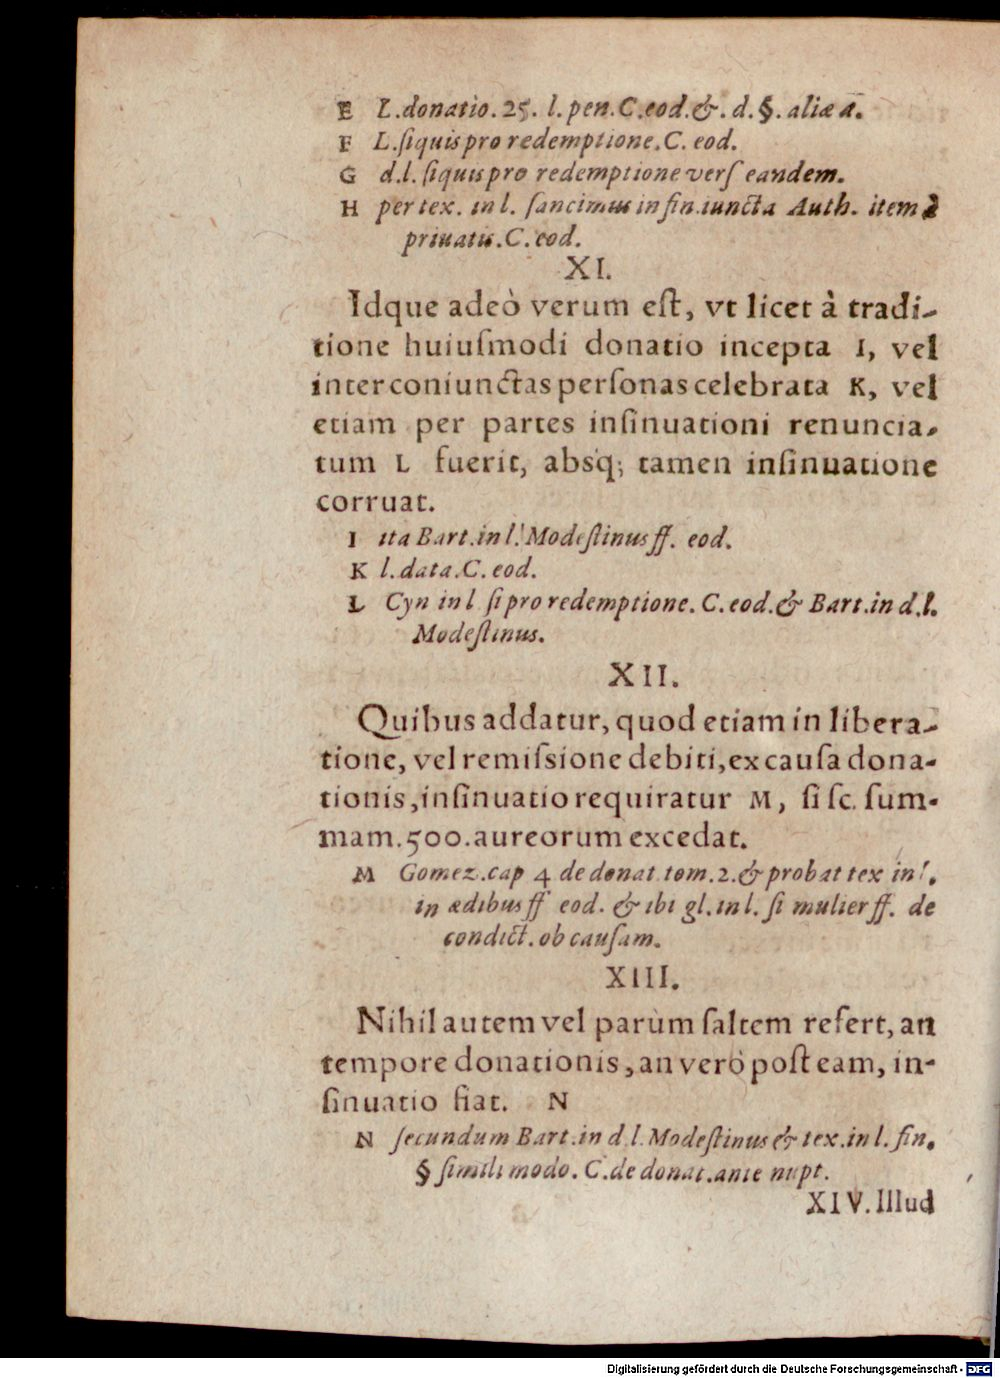 E L.donatio. 25. l. pen. C. eod. &. d. §. aliæ a.
F L. ſiquis pro redemptione. C. eod.
G d. l. ſiquis pro redemptione verſ eandem.
H per tex. in l. ſancimus in fin. iuncta Auth. item à
priuatis. C. eod.
XI.
Idque adeò verum eſt, vt licet à tradi-
tione huiuſmodi donatio incepta I, vel
inter coniunctas perſonas celebrata K, vel
etiam per partes inſinuationi renuncia-
tum L fuerit, absq; tamen inſinuatione
corruat.
I ita Bart. in l. Modeſtinus ff. eod.
K l. data. C. eod.
L Cyn in l ſi pro redemptione. C. eod. & Bart. in d. l.
Modeſtinus.
XII.
Quibus addatur, quod etiam in libera-
tione, vel remiſsione debiti, ex cauſa dona-
tionis, inſinuatio requiratur M, ſi ſc. ſum-
mam. 500. aureorum excedat.
M Gomez. cap 4 de donat. tom. 2. & probat tex in l.
in ædibus ff eod. & ibi gl. in l. ſi mulier ff. de
condict. ob cauſam.
XIII.
Nihil autem vel parùm ſaltem refert, an
tempore donationis, an verò poſt eam, in-
ſinuatio fiat. N
N ſecundum Bart. in d. l. Modeſtinus & tex. in l. fin.
§ ſimili modo. C. de donat. ante nupt.
XIV. Illud
Digitalisierung gefördert durch die Deutsche Forschungsgemeinschaft - DFG